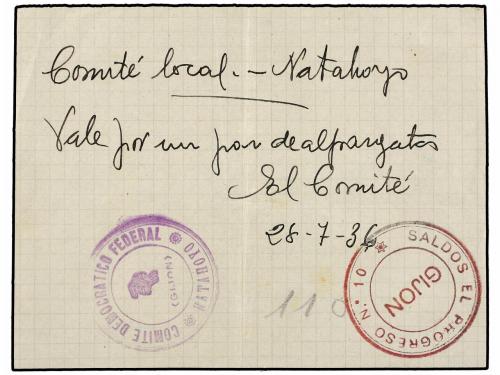 Comité local. – Natahoyo
Vale por un par de alpargatas
El Comité
28-7-36
COMITE DEMOCRATICO FEDERAL
NATAHOYO
(GIJON)
SALDOS EL PROGRESO N.º 10
GIJON
110